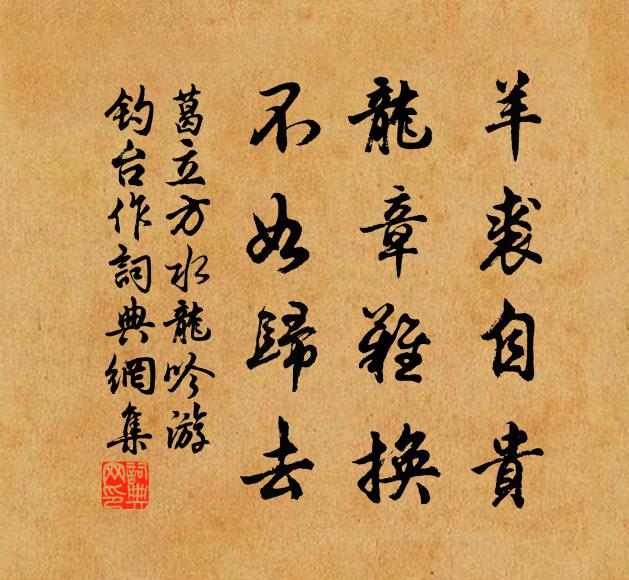 羊裘自貴
龍章難換
不如歸去
葛立方水龍吟游
釣台作詞典網集
詞典網印